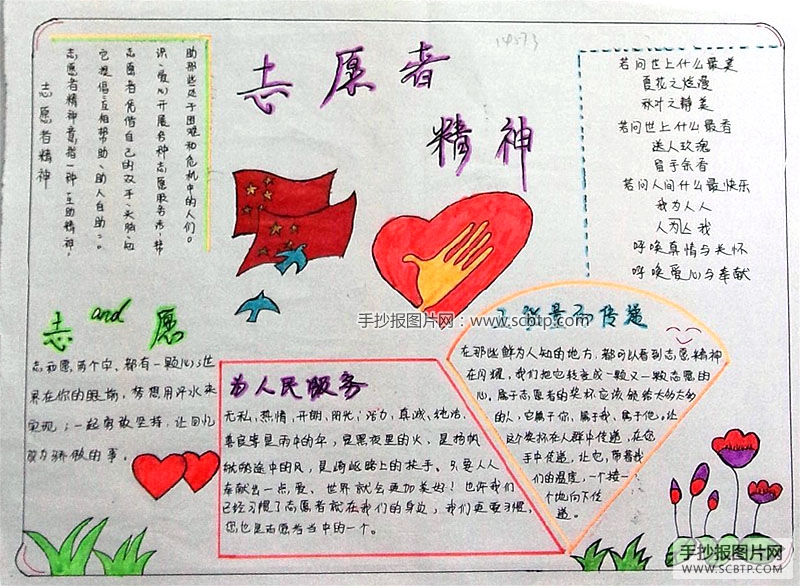 志愿者
精神
志愿者精神
志愿者精神意指一种互助精神，
它提倡互相帮助、助人自助。
志愿者凭借自己的双手、头脑、知
识、爱心开展各种志愿服务活动，帮
助那些处于困难和危机中的人们。
若问世上什么最美
夏花之烂漫
秋叶之静美
若问世上什么最香
送人玫瑰
留手余香
若问人间什么最快乐
我为人人
人为我
呼唤真情与关怀
呼唤爱心与奉献
手抄报图片网：www.scbtp.com
志 and 愿
志和愿两个字、都有一颗心；这
果在你的眼前，梦想用汗水来
实现；一起勇敢坚持，让回忆
成为骄傲的事。
为人民服务
无私，热情，开朗，阳光；活力，真诚、纯洁，
善良等是雨中的伞，是黑夜里的火、是扬帆
旅途中的风，是崎岖路上的扶手、只要人人
奉献出一点爱、世界就会更加美好！也许我们
已经习惯了志愿者就在我们的身边，我们更要习惯，
您也是志愿者当中的一个。
传递
在那些鲜为人知的地方，都可以看到志愿精神
在闪耀，我们把它转变成一颗又一颗志愿的
心，属于志愿者的奖杯应该能给大的大的
的人，它属于你、属于我、属于他。让
这个奖杯在人群中传递，在你
手中传递，让它，带着我
们的温度，一个接一
个地向下传
递。
手抄报图片网
WWW.SCBTP.COM